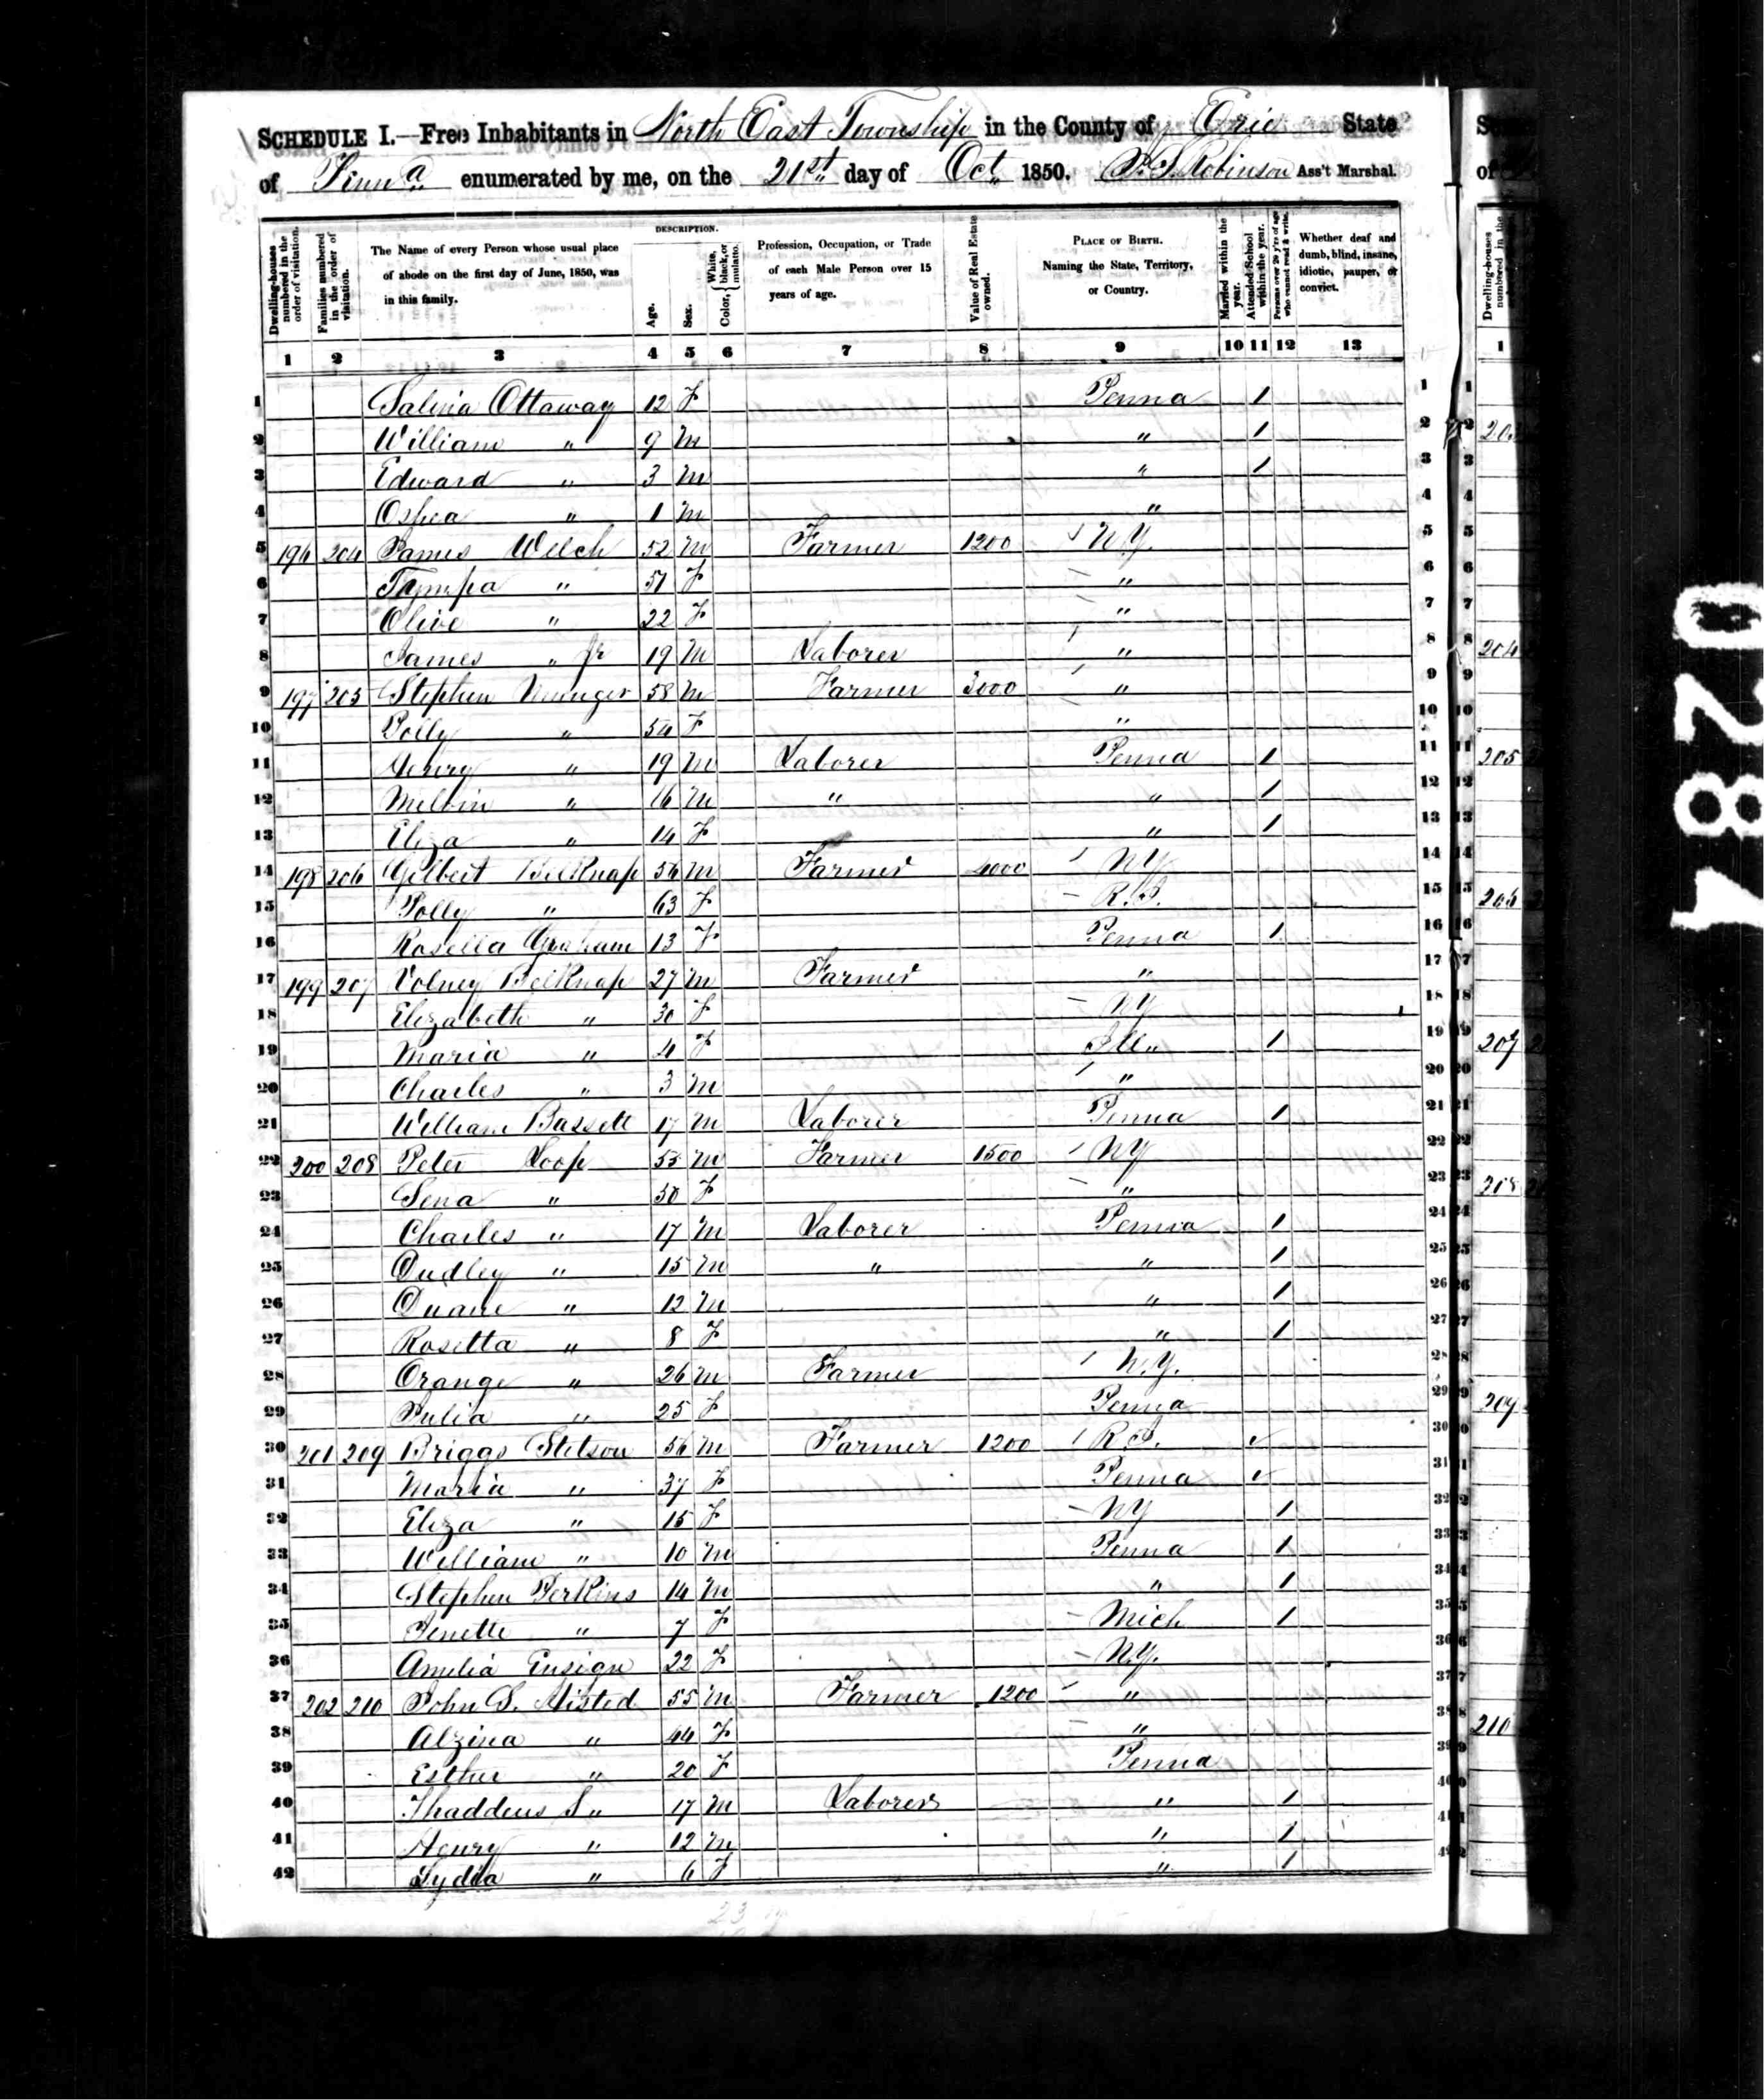 SCHEDULE I.—Free Inhabitants in North East Township in the County of Erie State
of Penna enumerated by me, on the 21st day of Oct 1850. P. S. Robinson Ass't Marshal.
Dwelling-houses numbered in the order of visitation.
Families numbered in the order of visitation.
The Name of every Person whose usual place of abode on the first day of June, 1850, was in this family.
DESCRIPTION.
Age.
Sex.
Color, { White, black, or mulatto.
Profession, Occupation, or Trade of each Male Person over 15 years of age.
Value of Real Estate owned.
PLACE OF BIRTH. Naming the State, Territory, or Country.
Married within the year.
Attended School within the year.
Persons over 20 y'rs of age who cannot read & write.
Whether deaf and dumb, blind, insane, idiotic, pauper, or convict.
1 2 3 4 5 6 7 8 9 10 11 12 13
1 Salina Ottaway 12 F Penna 1 1
2 William " 9 M " 1 2
3 Edward " 3 M " 1 3
4 1 M " 4
5 196 204 James Welch 52 M Farmer 1200 N.Y. 5
6 " 51 F " 6
7 Olive " 22 F " 7
8 James " Jr 19 M Laborer " 8
9 197 205 Stephen 58 M Farmer 3000 " 9
10 Polly " 54 F " 10
11 Henry " 19 M Laborer Penna 1 11
12 Melvin " 16 M " " 1 12
13 Eliza " 14 F " 1 13
14 198 206 Gilbert BelKnap 56 M Farmer 4000 NY 14
15 Polly " 63 F R.I. 15
16 Rosella Graham 13 F Penna 1 16
17 199 207 Volney BelKnap 27 M Farmer " 17
18 Elizabeth " 30 F NY 18
19 Maria " 4 F Ill" 1 19
20 Charles " 3 M " 20
21 William Bassett 17 M Laborer Penna 1 21
22 200 208 Peter Loop 55 M Farmer 1500 NY 22
23 Sena " 50 F " 23
24 Charles " 17 M Laborer Penna 1 24
25 Dudley " 15 M " " 1 25
26 Duane " 12 M " 1 26
27 Rosetta " 8 F " 1 27
28 Orange " 26 M Farmer N.Y. 28
29 Julia " 25 F Penna 29
30 201 209 Briggs Stetson 56 M Farmer 1200 R.I. ✓ 30
31 Maria " 37 F Penna ✓ 31
32 Eliza " 15 F NY 1 32
33 William " 10 M Penna 1 33
34 Stephen PerKins 14 M " 1 34
35 Jenette " 7 F Mich 1 35
36 Amelia Ensign 22 F N.Y. 36
37 202 210 John S. 55 M Farmer 1200 " 37
38 Alzina " 44 F " 38
39 Esther " 20 F Penna 39
40 Thaddeus S " 17 M Laborer " 1 40
41 Henry " 12 M " 1 41
42 Lydia " 6 F " 1 42
0287
1
1
204
205
206
207
208
209
210